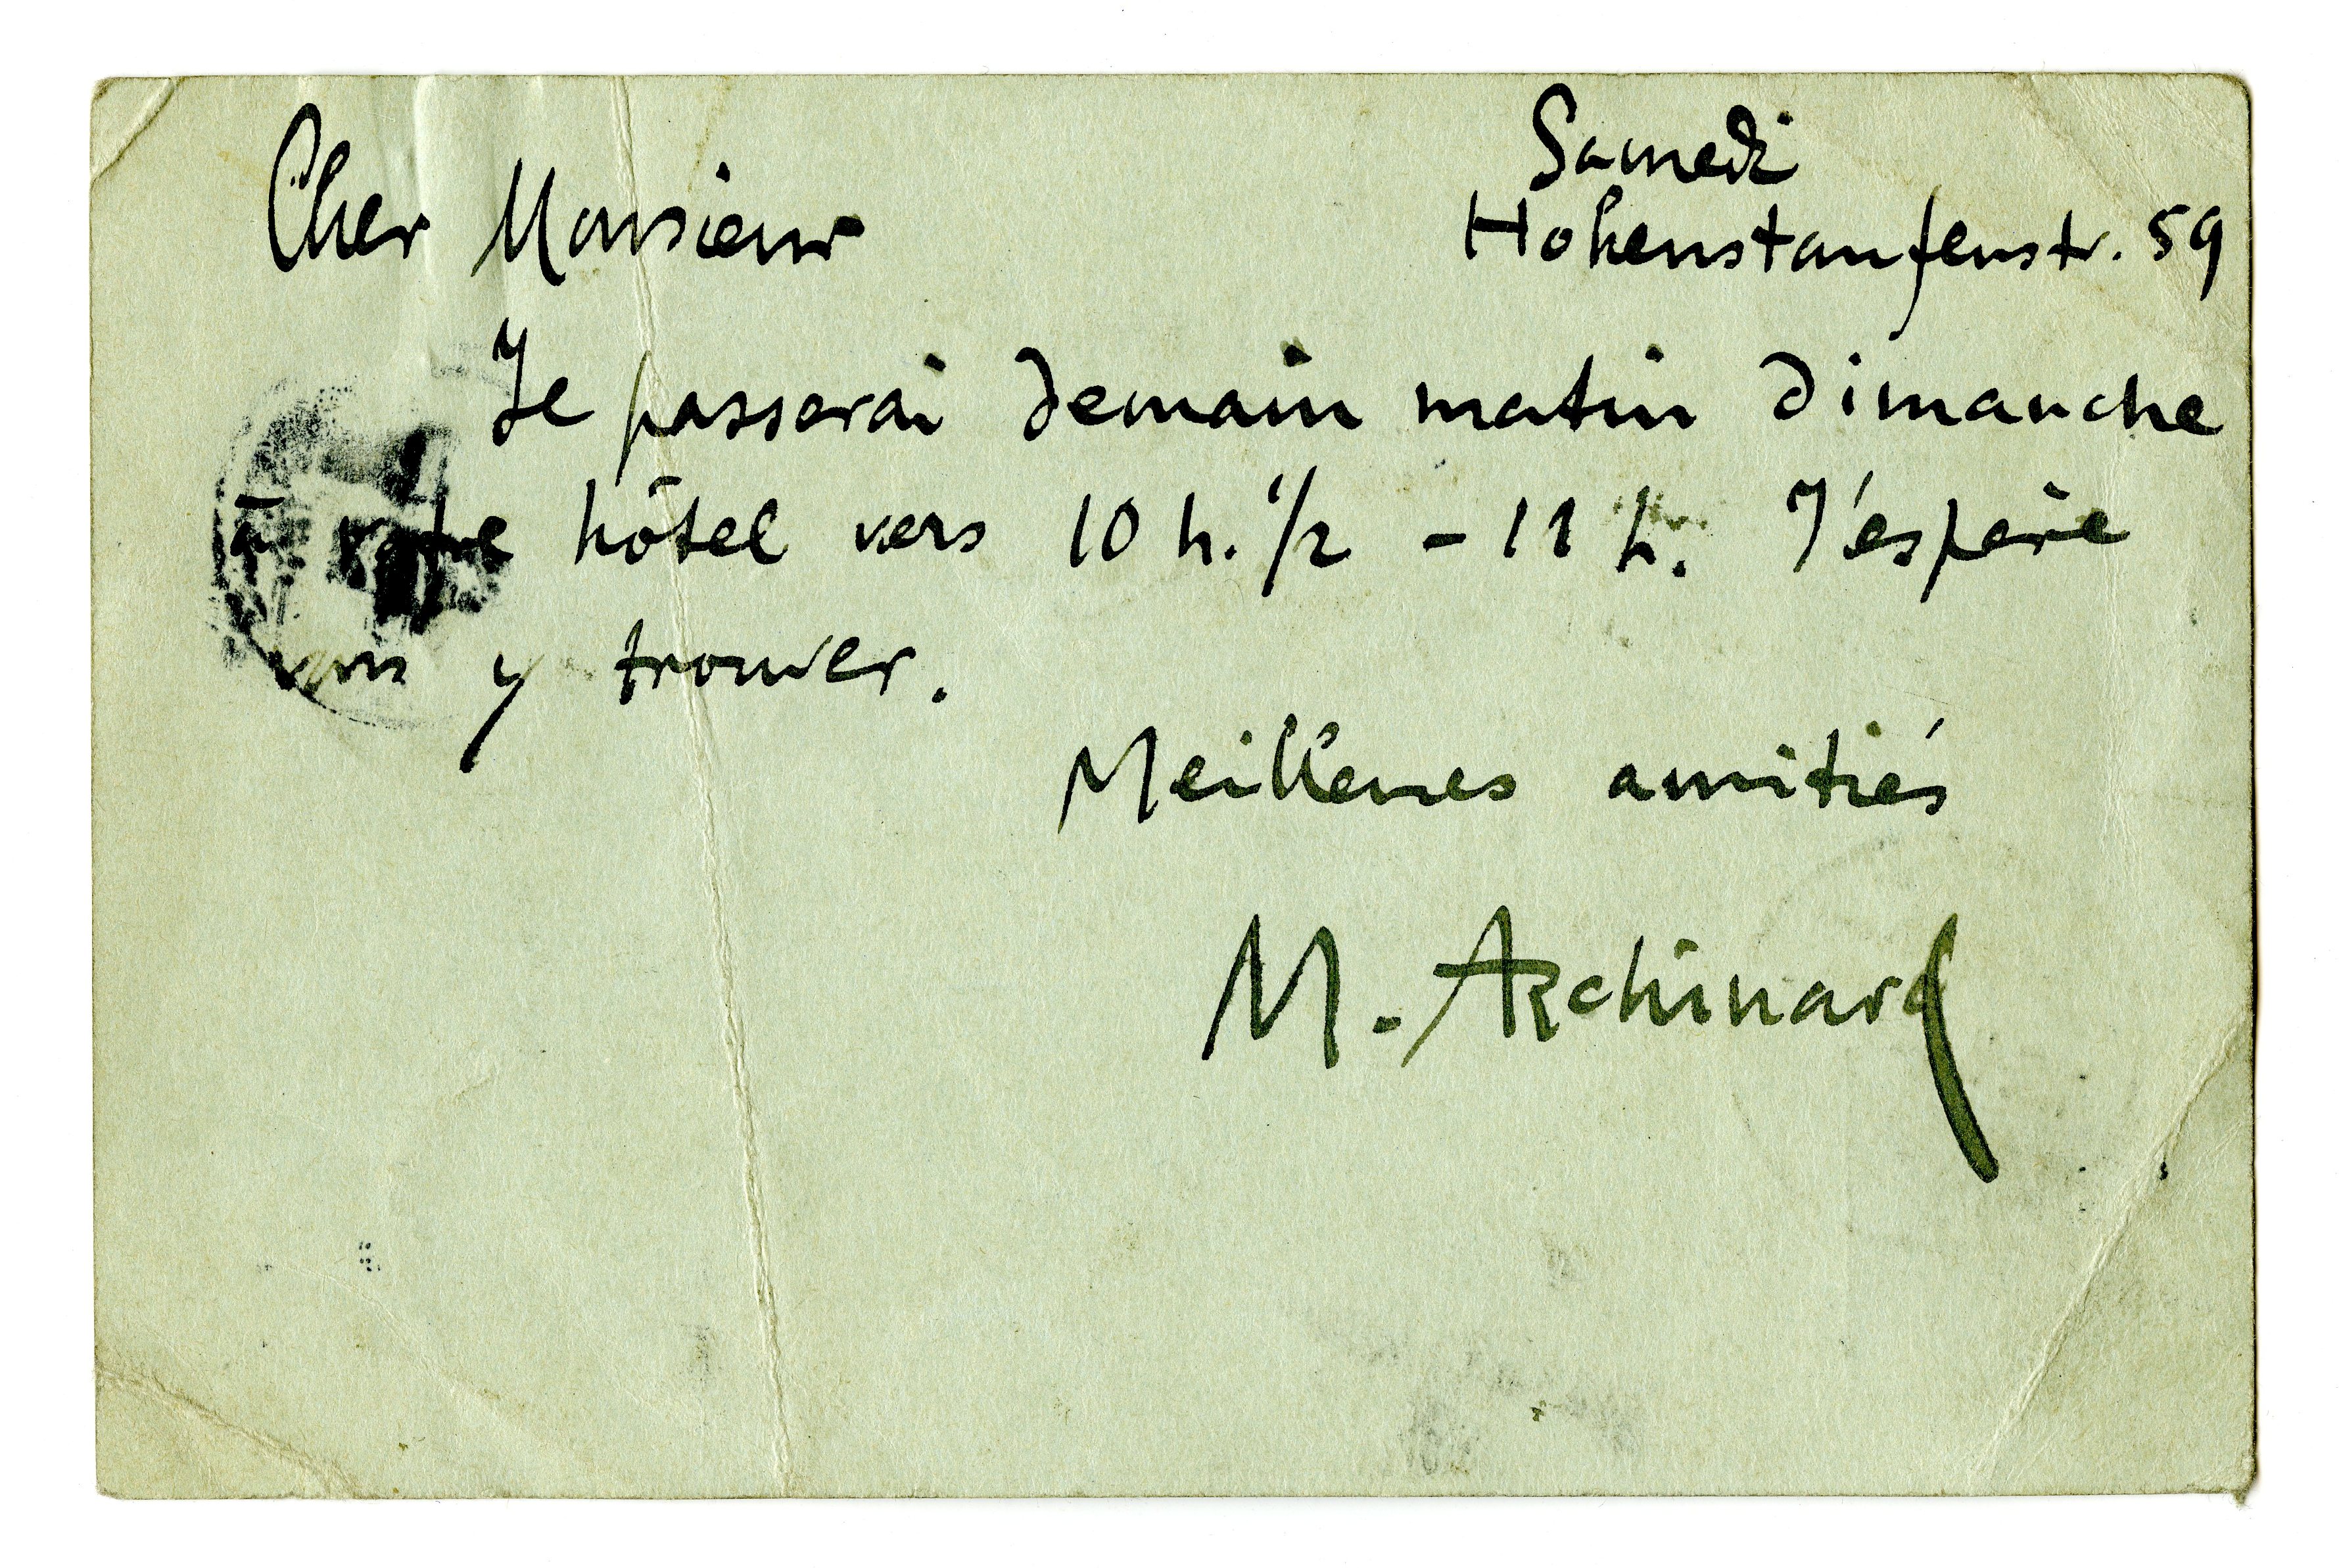 Samedi
Hohenstaufenstr. 59
Cher Monsieur
Je passerai demain matin dimanche
à votre hôtel vers 10 h. 1/2 - 11 h. J'espère
vous y trouver.
Meilleures amitiés
M. Archinard